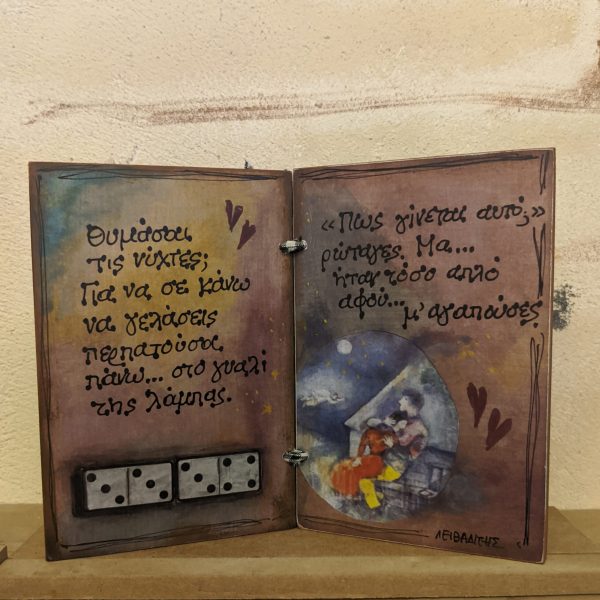 Θυμάσαι
τις νύχτες;
Για να σε κάνω
να γελάσεις
περπατούσα
πάνω... στο γυαλί
της λάμπας.
«Πως γίνεται αυτό;»
ρώταγες. Μα...
ήταν τόσο απλό
αφού...
μ' αγαπούσες
ΛΕΙΒΑΔΙΤΗΣ